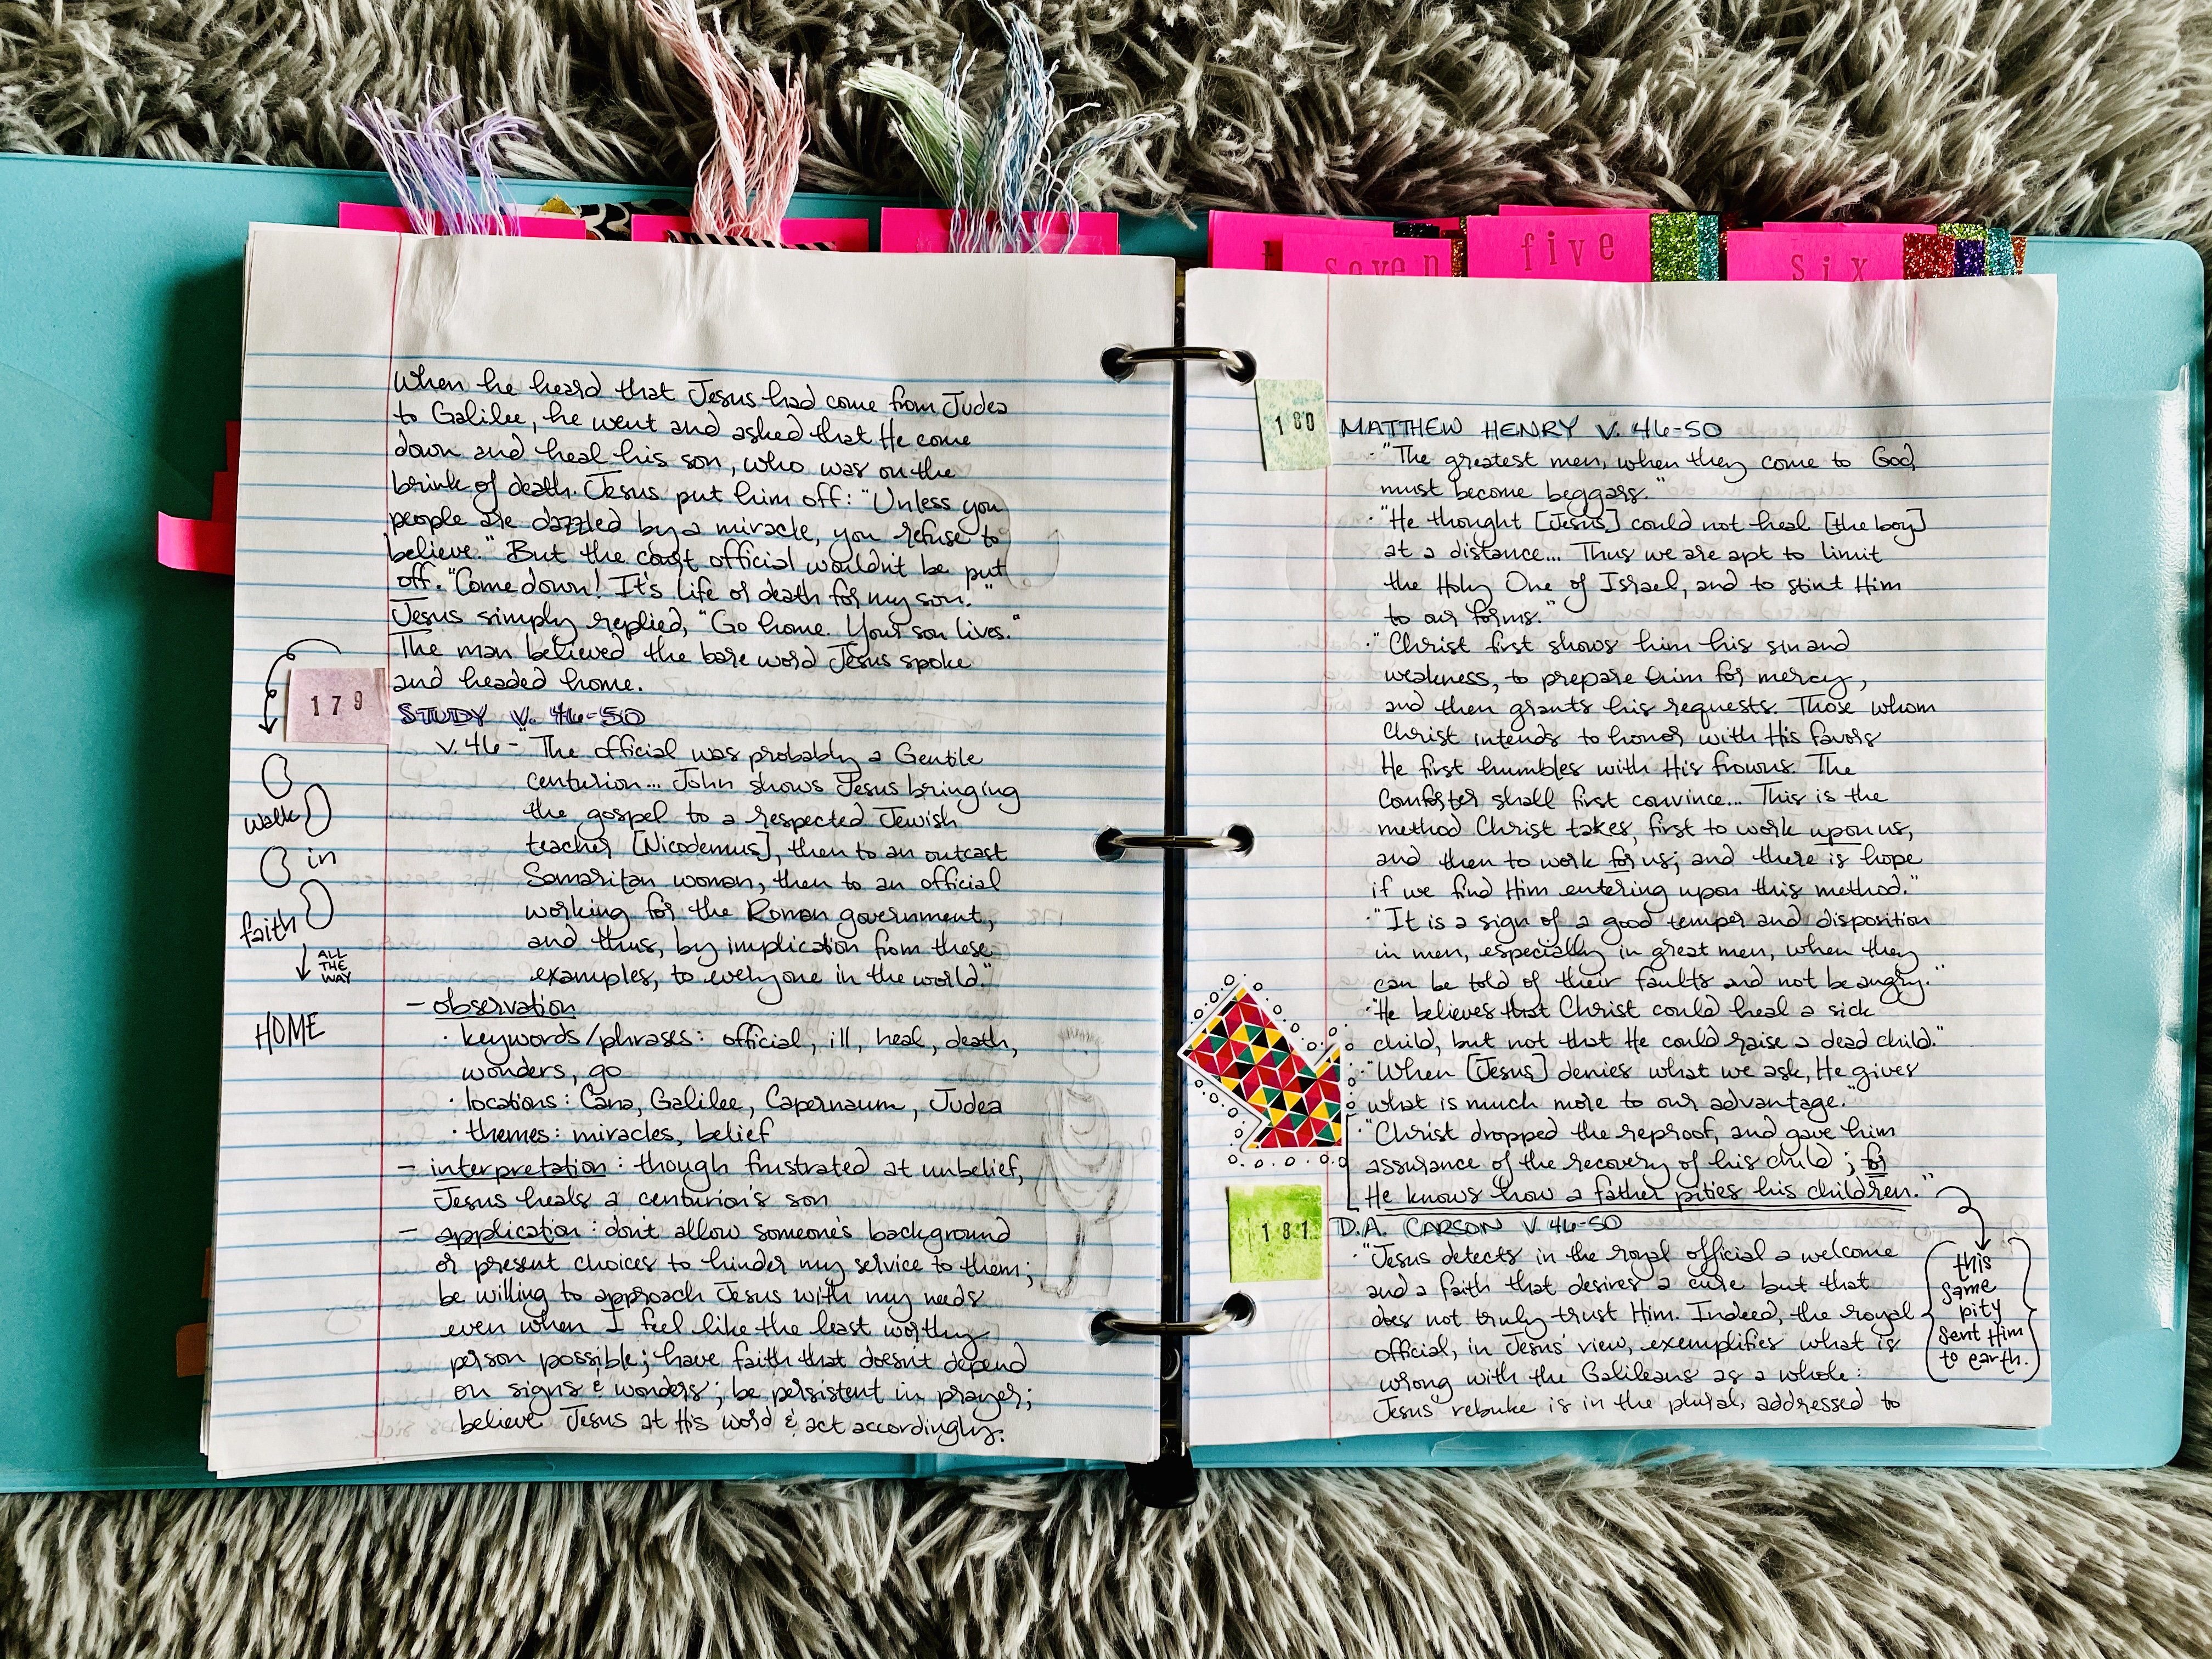 seven
five
six
When he heard that Jesus had come from Judea
to Galilee, he went and asked that He come
down and heal his son, who was on the
brink of death. Jesus put him off: "Unless you
people are dazzled by a miracle, you refuse to
believe." But the court official wouldn't be put
off. "Come down! It's life or death for my son."
Jesus simply replied, "Go home. Your son lives."
The man believed the bare word Jesus spoke
and headed home.
179
STUDY V. 46-50
v. 46 - "The official was probably a Gentile
centurion... John shows Jesus bringing
the gospel to a respected Jewish
teacher [Nicodemus], then to an outcast
Samaritan woman, then to an official
working for the Roman government,
and thus, by implication from these
examples, to everyone in the world."
- observation
· keywords/phrases: official, ill, heal, death,
wonders, go
· locations: Cana, Galilee, Capernaum, Judea
· themes: miracles, belief
- interpretation: though frustrated at unbelief,
Jesus heals a centurion's son
- application: don't allow someone's background
or present choices to hinder my service to them;
be willing to approach Jesus with my needs
even when I feel like the least worthy
person possible; have faith that doesn't depend
on signs & wonders; be persistent in prayer;
believe Jesus at His word & act accordingly.
walk
in
faith
ALL
THE
WAY
HOME
180
MATTHEW HENRY V. 46-50
· "The greatest men, when they come to God,
must become beggars."
· "He thought [Jesus] could not heal [the boy]
at a distance... Thus we are apt to limit
the Holy One of Israel, and to stint Him
to our forms."
· "Christ first shows him his sin and
weakness, to prepare him for mercy,
and then grants his requests. Those whom
Christ intends to honor with His favors
He first humbles with His frowns. The
Comforter shall first convince... This is the
method Christ takes, first to work upon us,
and then to work for us; and there is hope
if we find Him entering upon this method."
· "It is a sign of a good temper and disposition
in men, especially in great men, when they
can be told of their faults and not be angry."
· "He believes that Christ could heal a sick
child, but not that He could raise a dead child."
· "When [Jesus] denies what we ask, He gives
what is much more to our advantage."
· "Christ dropped the reproof, and gave him
assurance of the recovery of his child; for
He knows how a father pities his children."
181
D.A. CARSON V. 46-50
· "Jesus detects in the royal official a welcome
and a faith that desires a cure but that
does not truly trust Him. Indeed, the royal
official, in Jesus' view, exemplifies what is
wrong with the Galileans as a whole:
Jesus' rebuke is in the plural, addressed to
this
same
pity
sent Him
to earth.